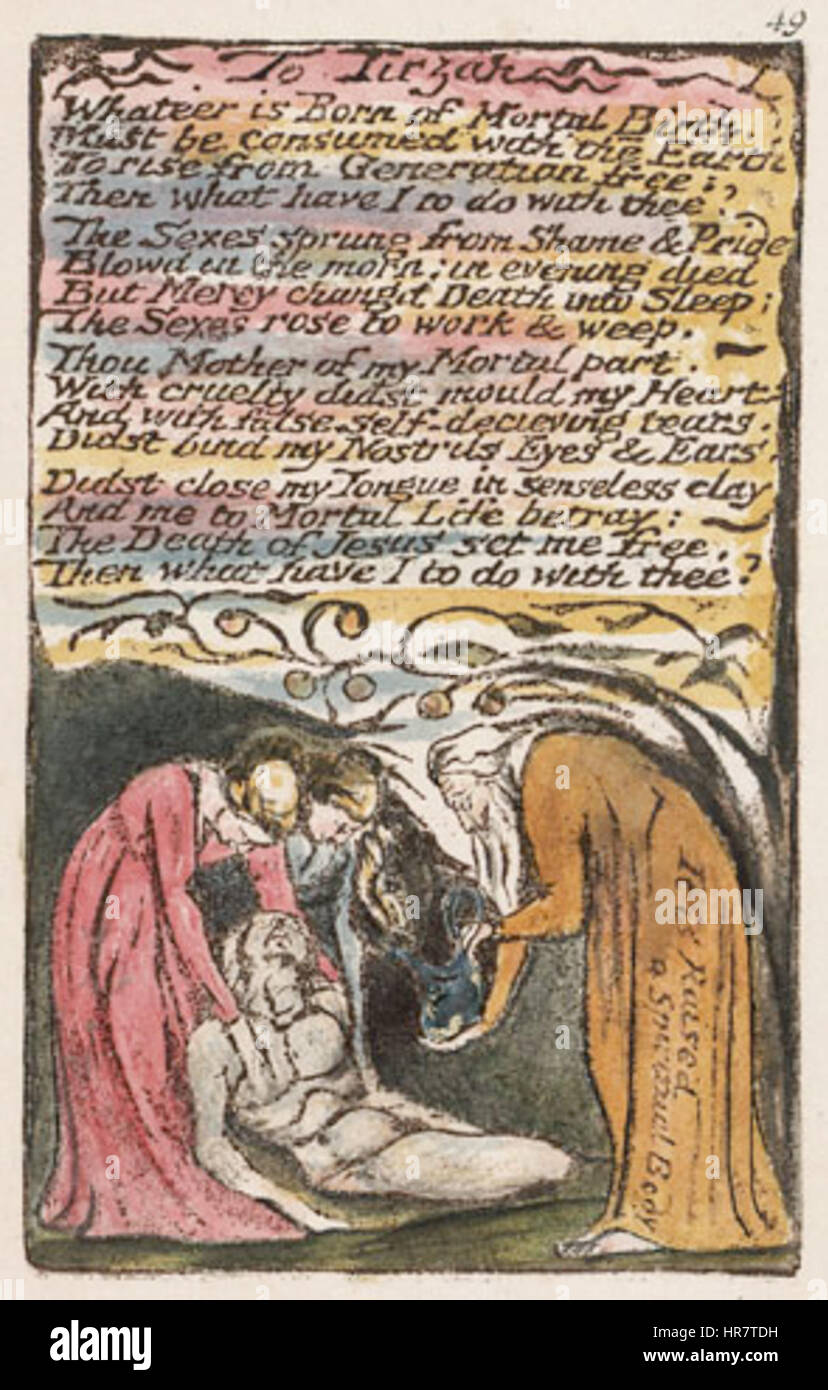 49
To Tirzah
Whate'er is Born of Mortal Birth,
Must be consumed with the Earth
To rise from Generation free;
Then what have I to do with thee?
The Sexes sprung from Shame & Pride
Blowd in the morn; in evening died
But Mercy changd Death into Sleep;
The Sexes rose to work & weep.
Thou Mother of my Mortal part.
With cruelty didst mould my Heart.
And with false self-decieving tears.
Didst bind my Nostrils Eyes & Ears.
Didst close my Tongue in senseless clay
And me to Mortal Life betray:
The Death of Jesus set me free,
Then what have I to do with thee?
It is Raised
a Spiritual Body
alamy stock photo
HR7TDH
www.alamy.com